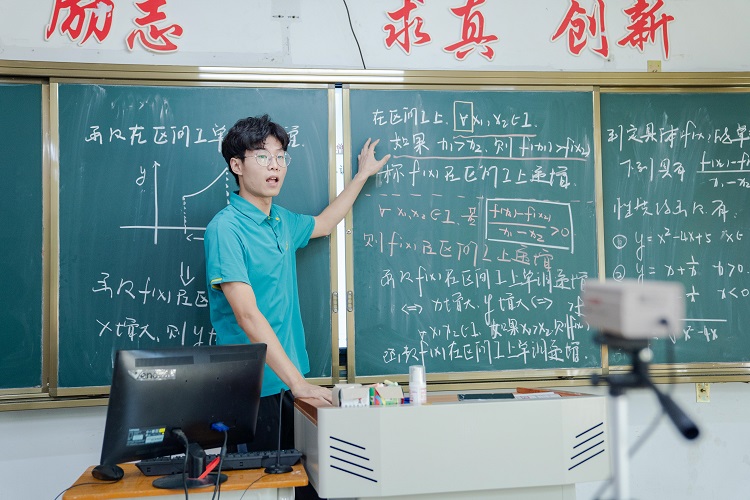 励志
求真
创新
函数在区间I上单调递增.
y
函数f(x)在区
x增大, 则y
在区间I上, ∀x₁, x₂∈I.
如果 x₁>x₂. 则 f(x₁)>f(x₂)
称f(x)在区间I上递增.
∀x₁,x₂∈I. 若 f(x₁)-f(x₂) / x₁-x₂ >0
则f(x)在区间I上递增
函数f(x)在区间I上单调递增
⇔ x增大, y增大 ⇔
∀x₁,x₂∈I. 如果x₁>x₂, 则f(x₁)
函数f(x)在区间I上单调递增.
f(x₁)-f(
x₁-x₂
① y = x²-4x+5
② y = x+1/x x>0
x<0
√x²-4x
Lenovo